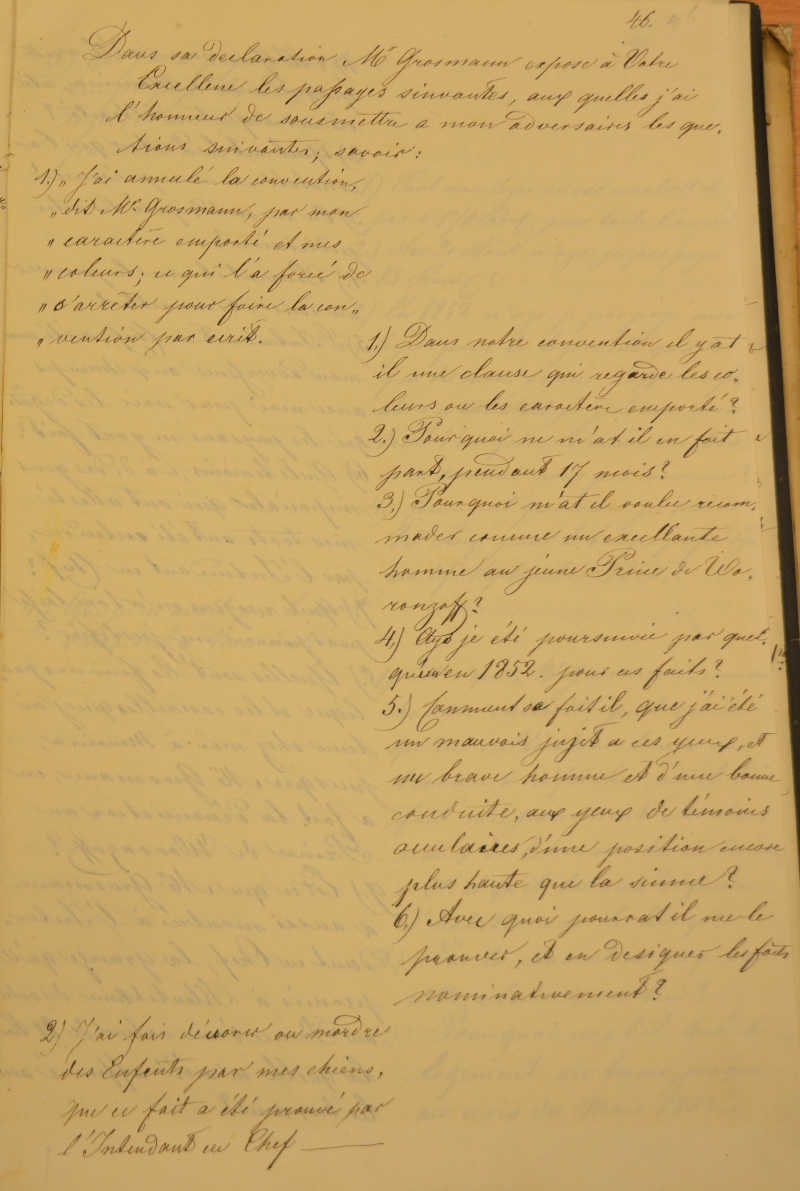 46.
Dans sa declaration Mr Grosmann expose à Votre
Excellene les passages sinvantes, aux quelles j'ai
l'honneur de sousmettre a mon adversaires les que,
stions suivantes; savoir:
1.) „ J'ai annulé la convention,
„ dit Mr. Grosmann, par mon
„ caractère emporté et mes
„ coleurs; ce qui l'a forcé de
„ s'arrêter pour faire la con„
„ vention par ecrit.
1.) Dans notre convention il y at
il une clause qui regarde les co,
leurs ou les caractère emporté?
2.) Pourquoi ne m'at il en fait
part, pendant 17 mois?
3.) Pourquoi m'at il voulu recom,
mader comme un excellante
homme au jeune Prince de Wo,
ronzoff?
4.) je été poursuivie par quel,
en 1852. pour ces faits?
5.) Comment se fait il, que j'ai été
un mauvais sujèt a ces yeux, et
un brave homme et d'une bonne
conduite, aux yeux de témoins
occulaires, d'une position encore
plus haute que la sienne?
6.) Avec quoi pourrat il me le
prouver, et en designer les faits
nominativement?
2.) J'ai fais dévorer ou mordre
des Enfents par mes chiens,
que ce fait a été prouvé par
l'Intendant en Chef